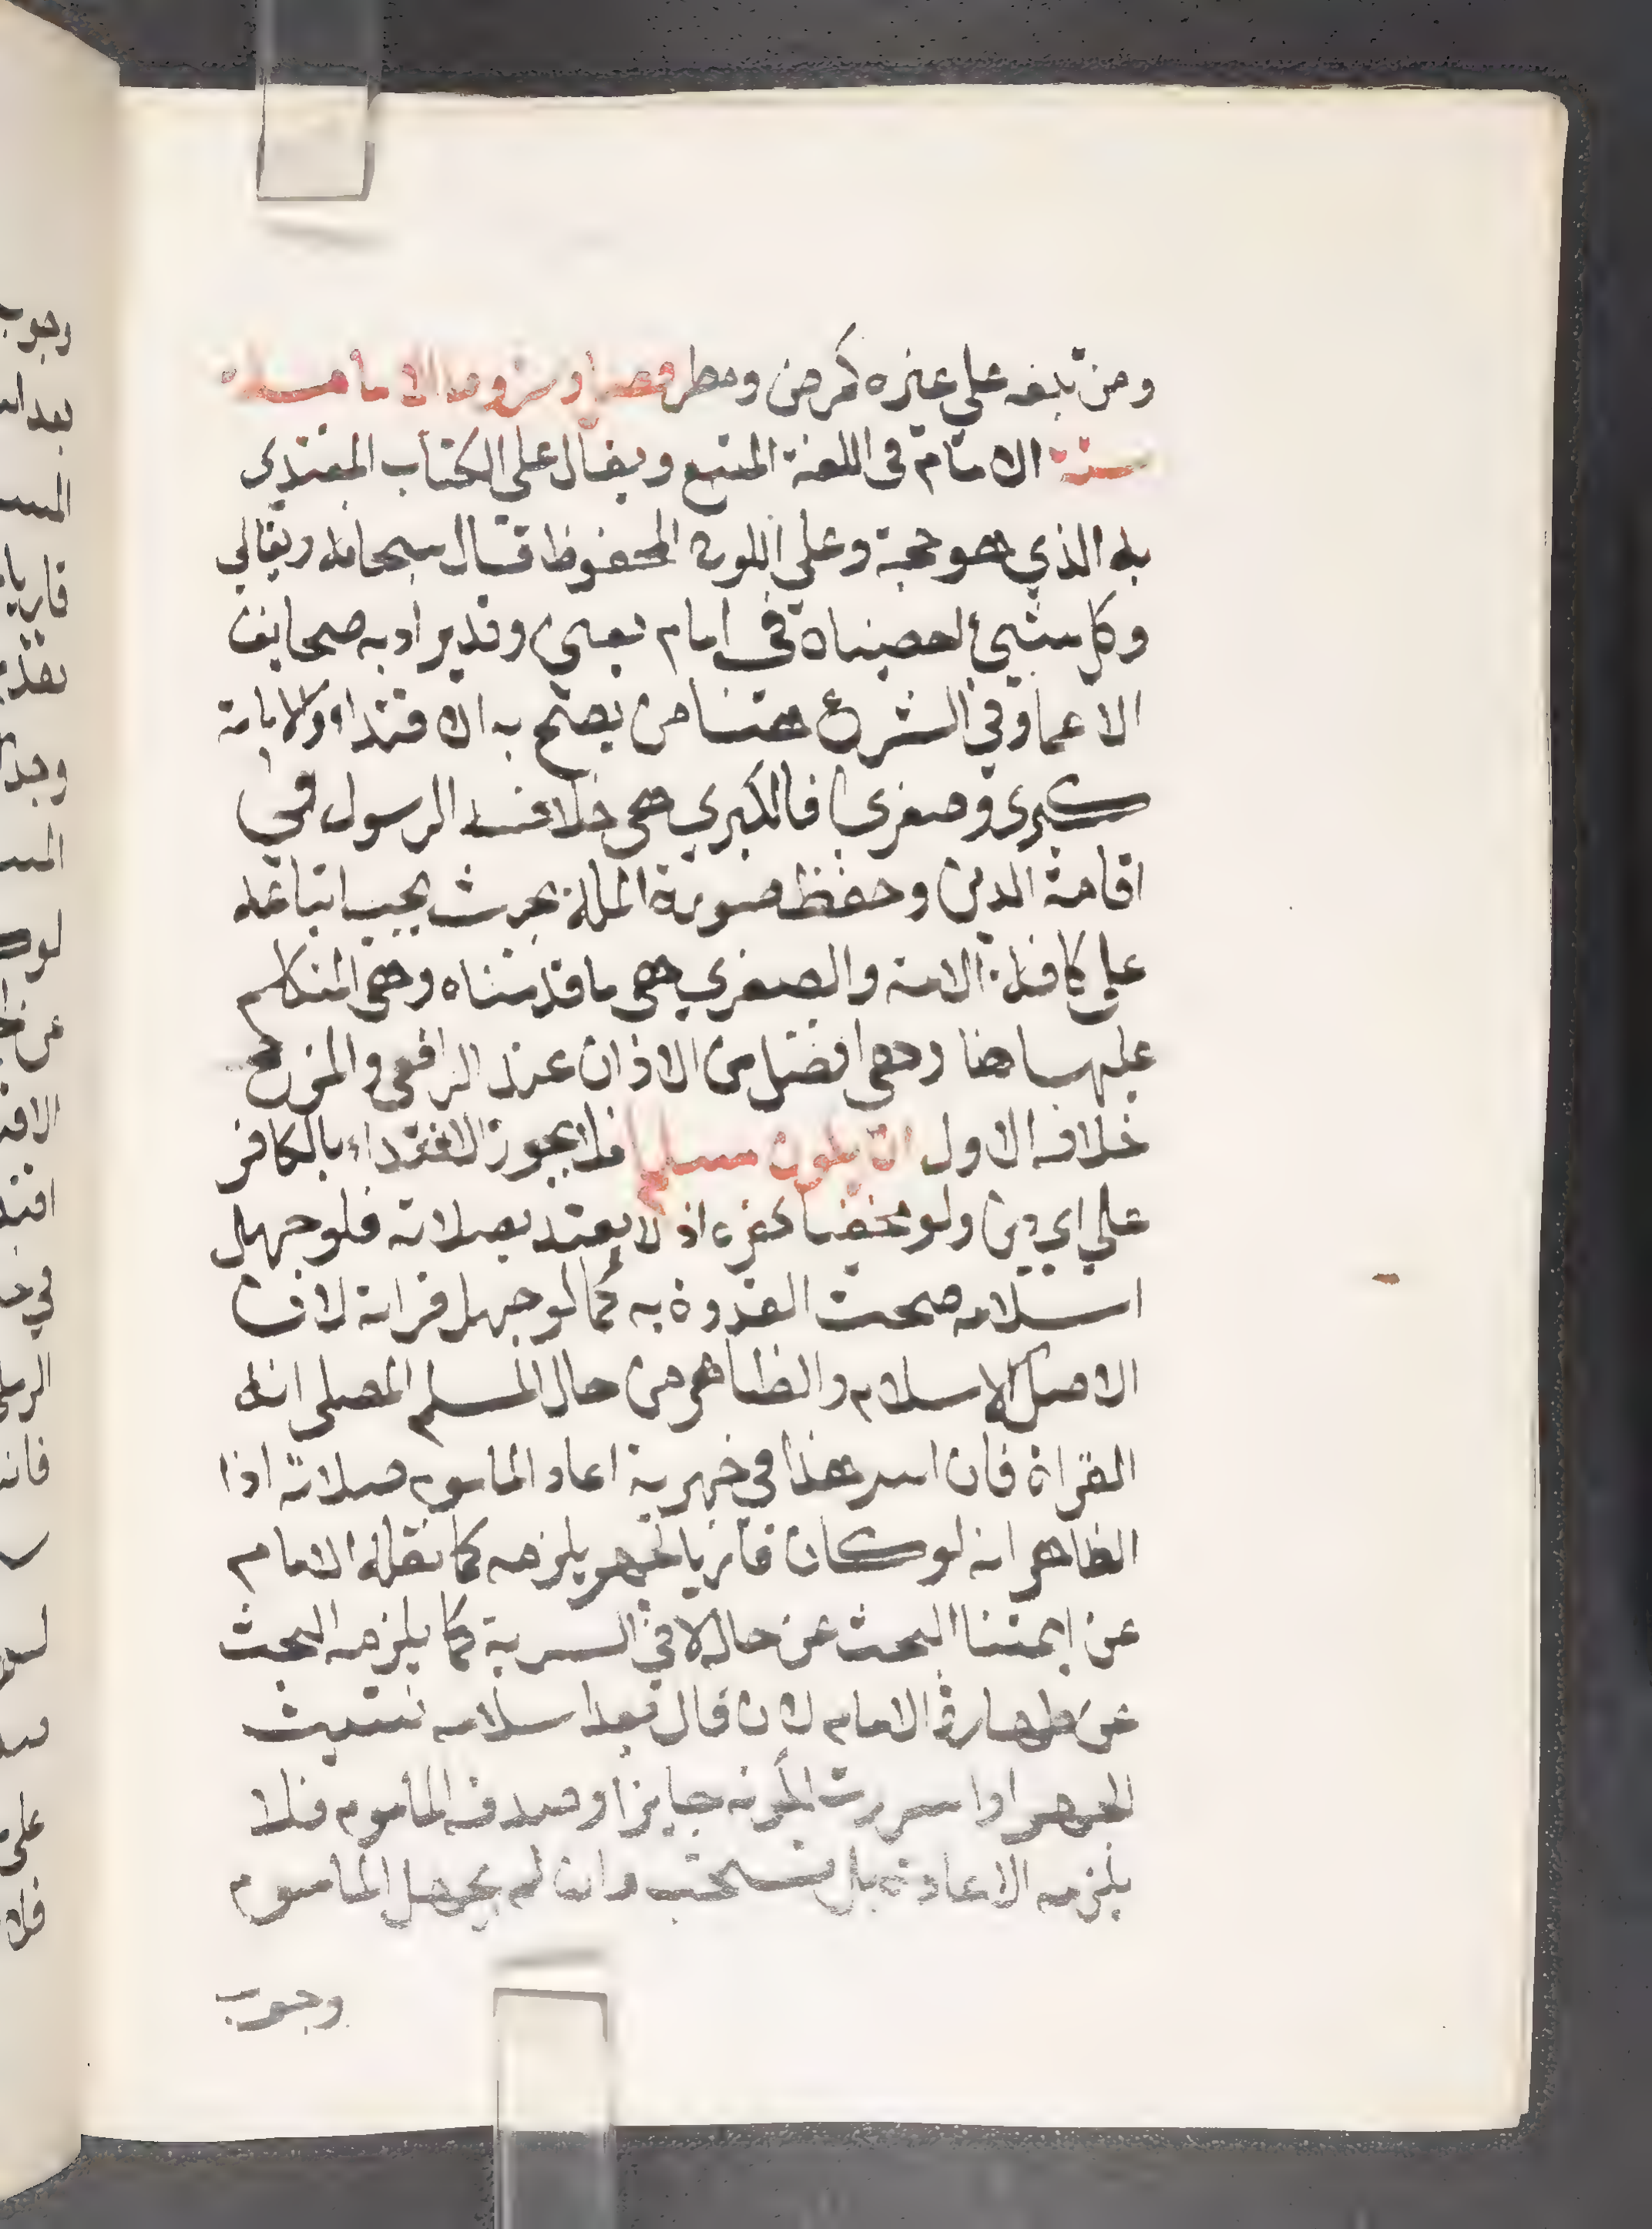 ومن تبغه علي غيره كمرض ومطر فصل وشروط الامامة
ستة الامام في اللغة المتبع ويقال علي الكتاب المقتدي
به الذي هو حجة وعلي اللوح المحفوظ قال سبحانه وتعالي
وكل شيئ احصيناه في امام يعني وقد يراد به صحايف
الاعما وفي الشرع هنا من يصح به الاقتدا والامامة
كبري وصغري فالكبري هي خلافة الرسول في
اقامة الدين وحفظ صورة الملة بحيث يجب اتباعه
علي كافة الامة والصغري هي ما قدمناه وهي المتكلم
عليها هنا وهي افضل من الاذان عند الرافعي والمزرع
خلافه الاول ان يكون مسلما فلا يجوز الاقتداء بالكافر
علي اي دين ولو مخفيا كفره اذ لا يعتد بصلاته فلو جهل
اسلامه صحت القدوة به كما لو جهل قراته لان
الاصل الاسلام والظاهر من حال المسلم المصلي انه
القراة فان اسر هذا في جهرية اعاد الماموم صلاته اذا
الظاهر انه لو كان قاريا لجهر ويلزمه كما نقله الامام
عن ايمتنا البحث عن حاله لا في السرية كما يلزمه البحث
عن طهارة الامام لان قال بعد اسلامه نسيت
الجهر او اسررت لكونه جايزا وصدقه الماموم فلا
يلزمه الاعادة بل تستحب وان لم يجهل الماموم
وجوب